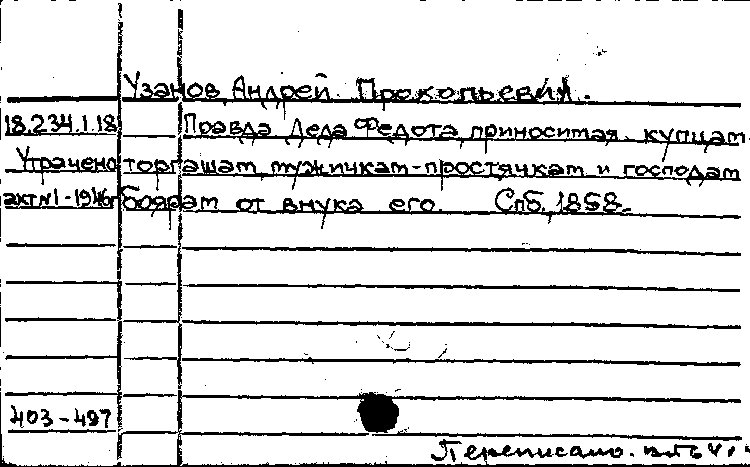 Узанов, Андрей Прокопьевич.
18.234.1.18 Правда Деда Федота, приносимая купцам-
Утрачено торгашам, мужичкам-простячкам и господам
акт №1-1946г боярам от внука его. Спб, 1858.
403-497
Переписано.